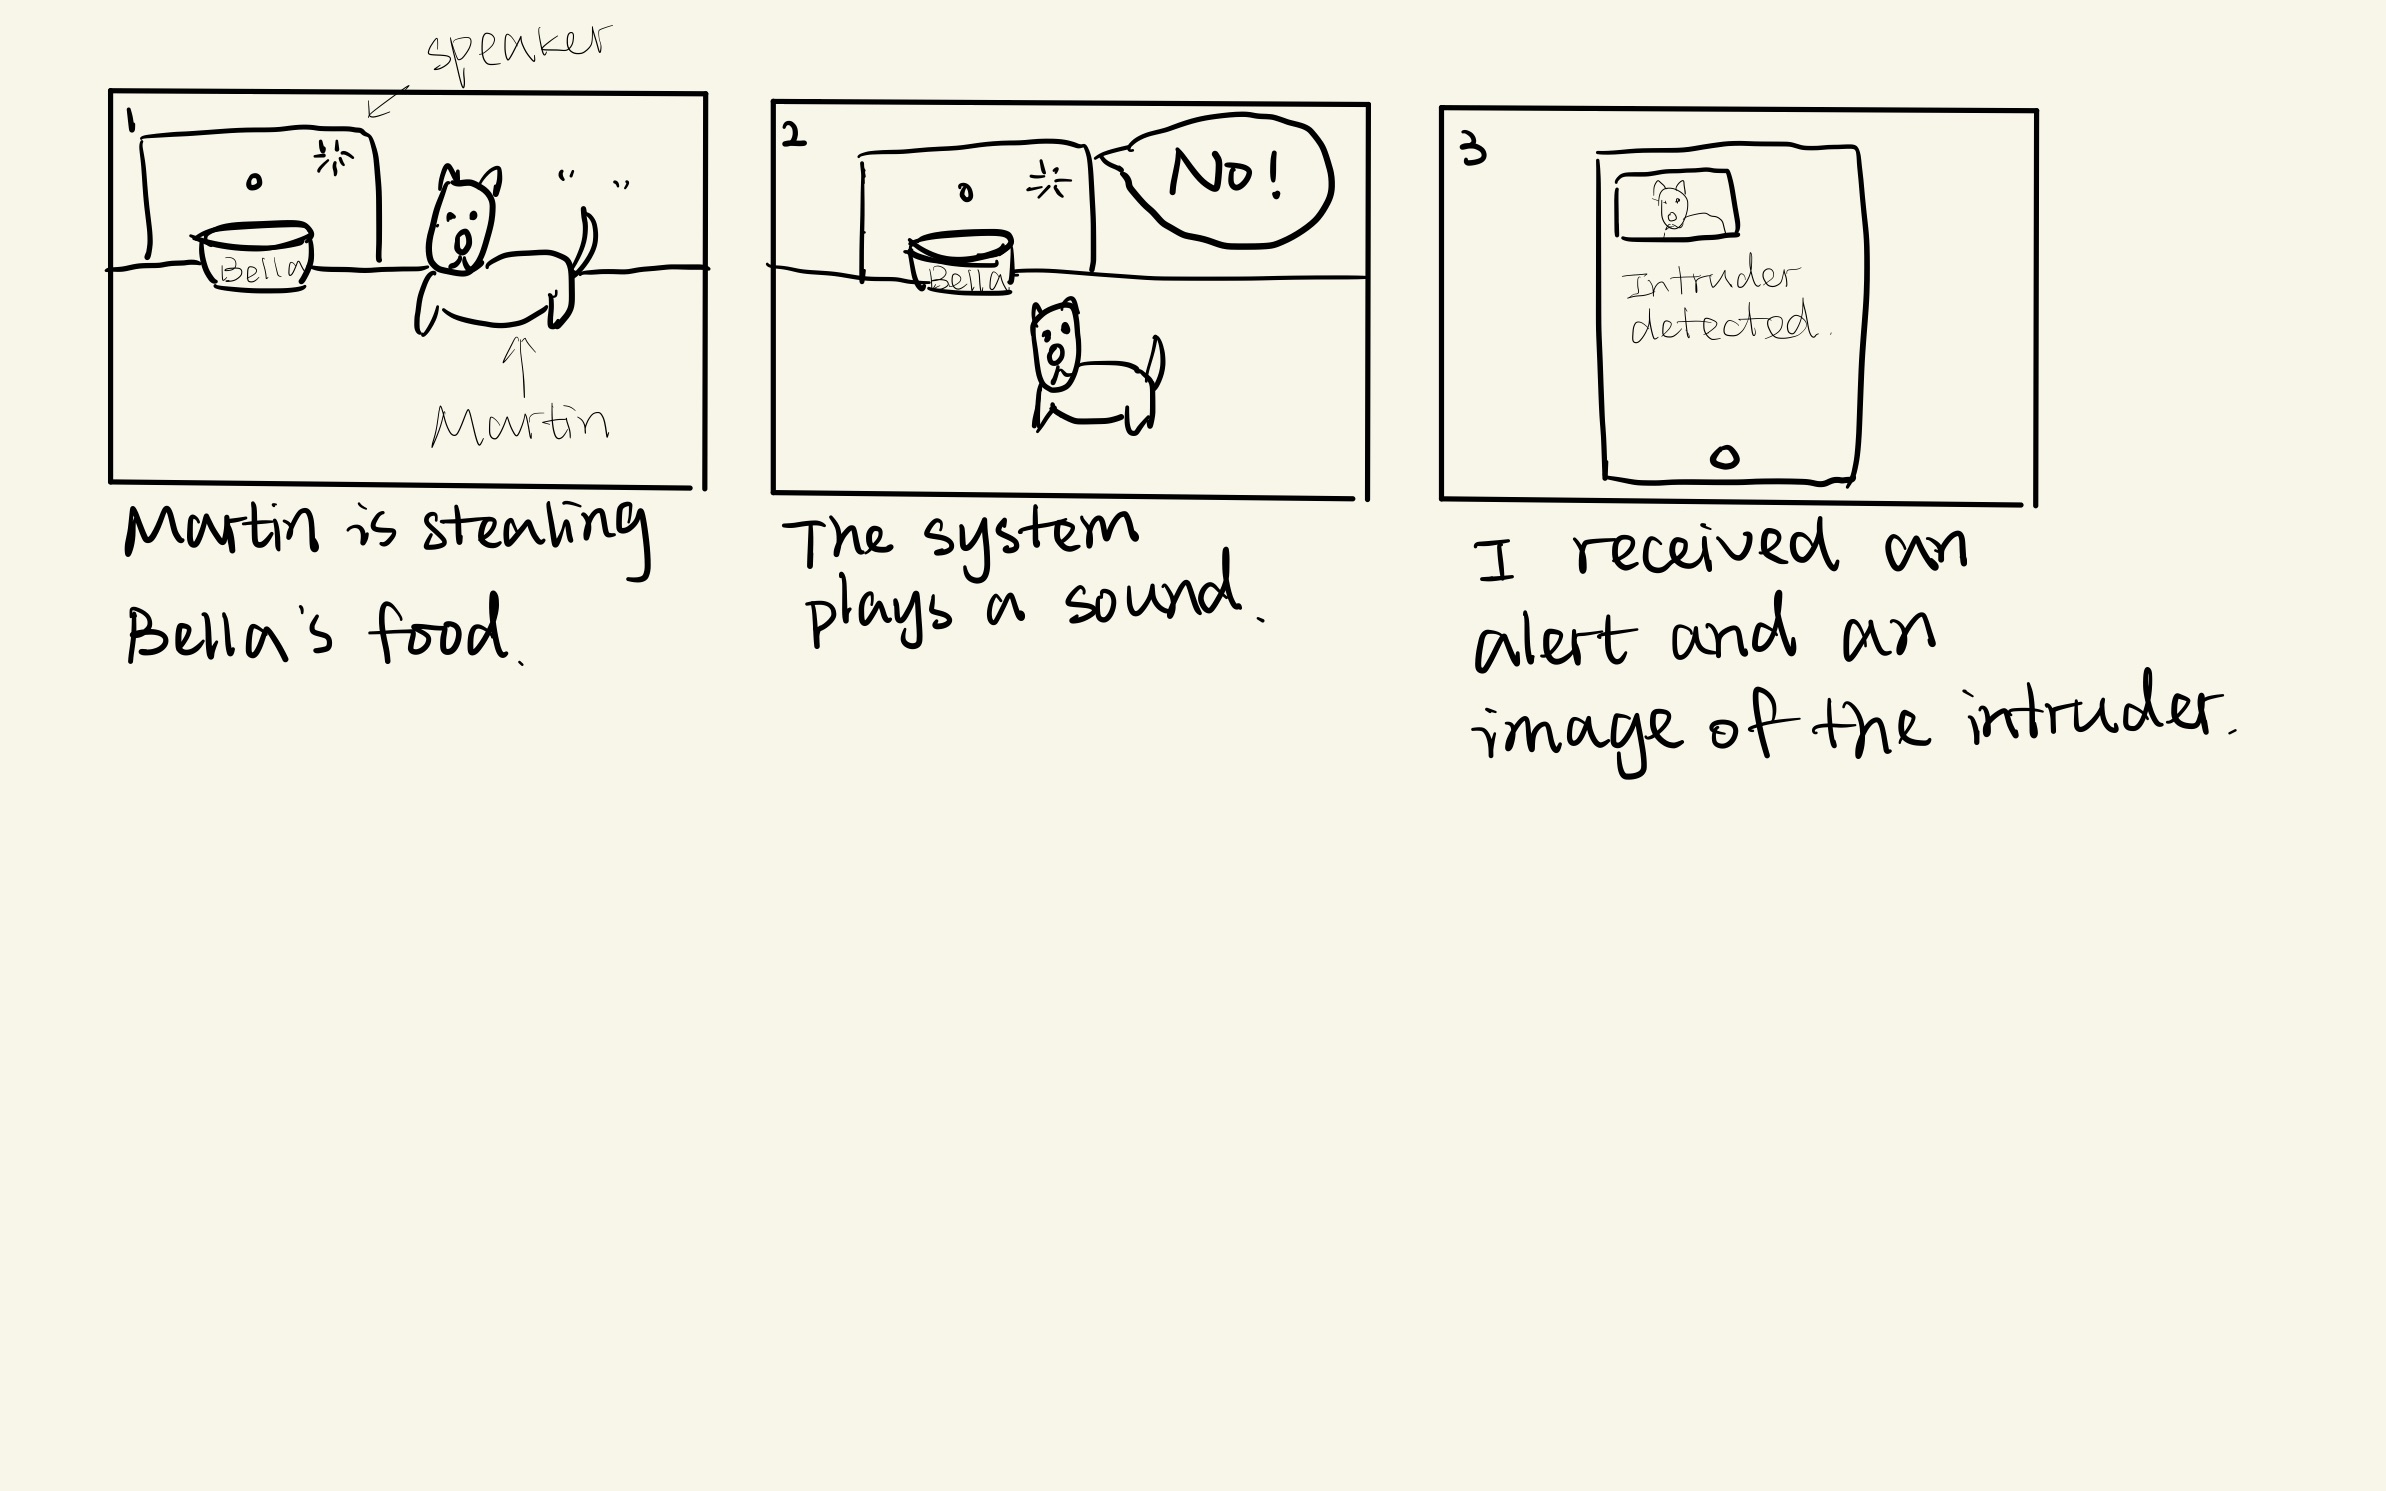 speaker
1
Bella
Martin
Martin is stealing
Bella's food.
2
No!
Bella
The system
plays a sound.
3
Intruder
detected.
I received an
alert and an
image of the intruder.